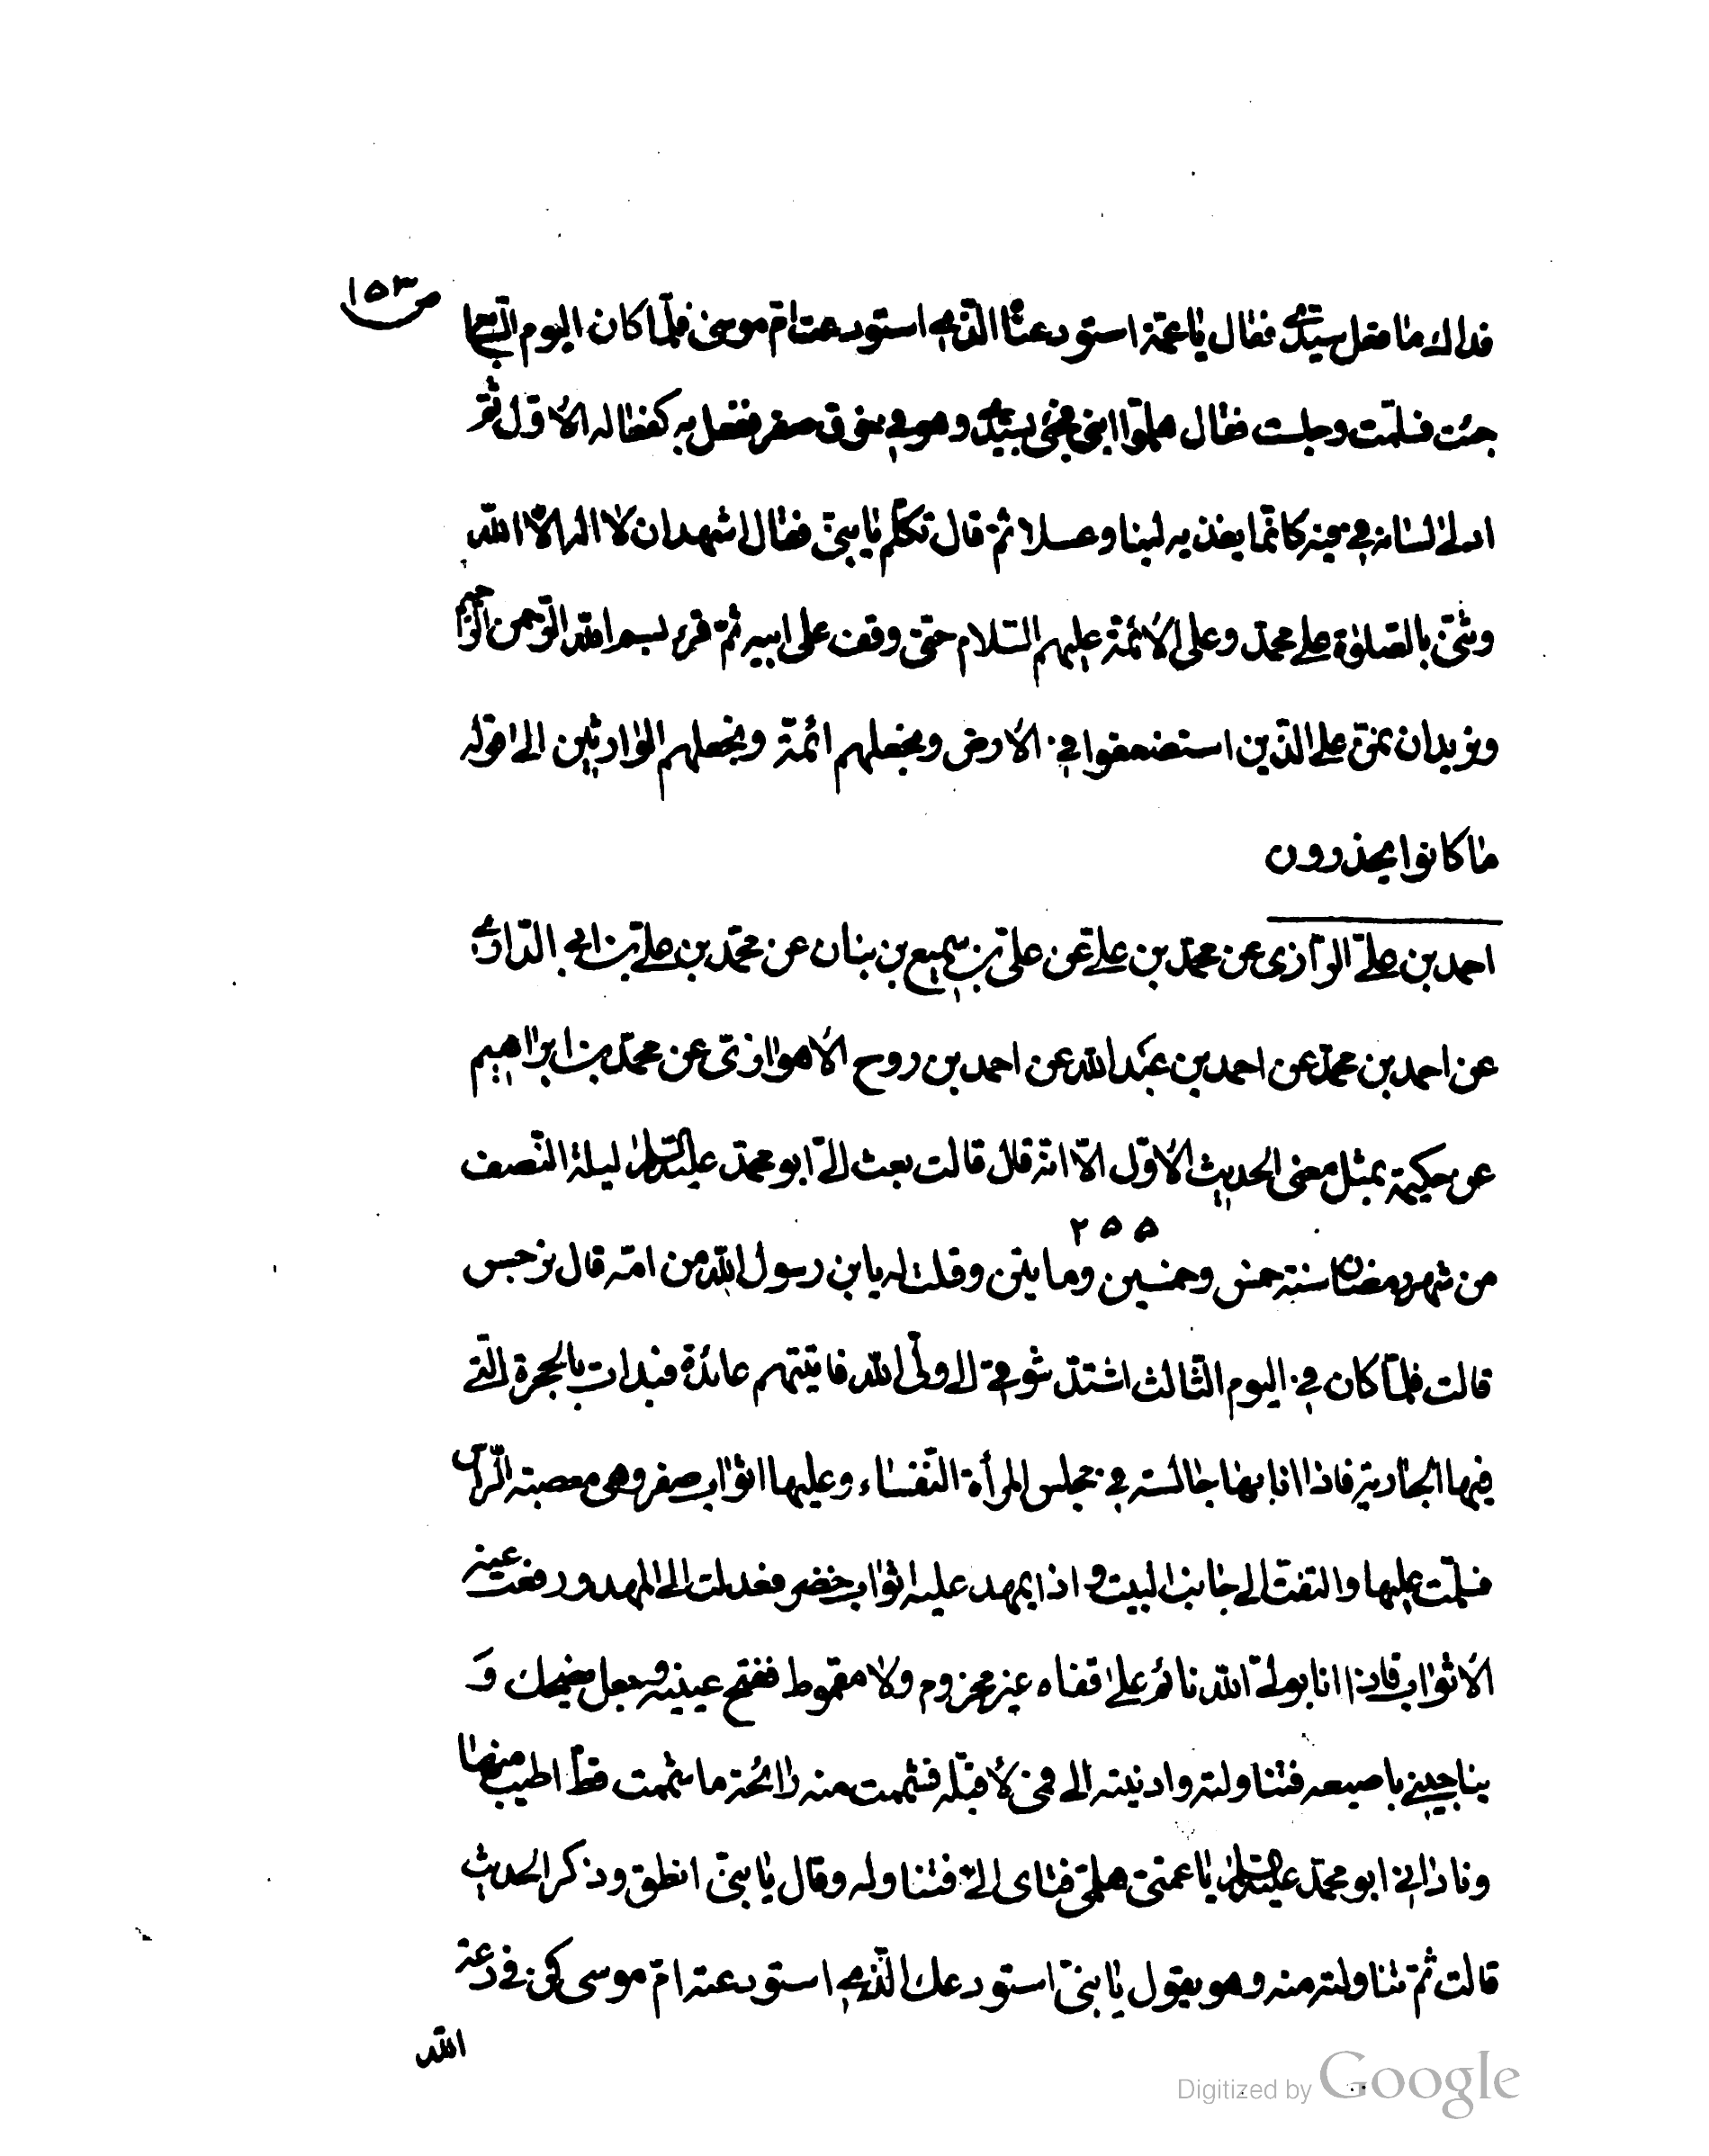 ص ١٥٣
فداك ما فعل سيّدى فقال يا عمّة استودعناه الّذى استودعت امّ موسى فلمّا كان اليوم السّابع
جئت فسلّمت وجلست فقال هلمّوا ابنى فجئ بسيّدى وهو فى خرق صفر ففعل به كفعاله الأوّل ثمّ
ادلى لسانه فى فيه كانّما يغذيه لبنا وعسلا ثمّ قال تكلّم يا بنىّ فقال اشهد ان لا اله الّا الله
وثنّى بالصّلوة على محمّد وعلى الأئمّة عليهم السّلام حتّى وقف على ابيه ثمّ قرء بسم الله الرّحمن الرّحيم
ونريد ان نمنّ على الّذين استضعفوا فى الأرض ونجعلهم ائمّة ونجعلهم الوارثين الى قوله
ما كانوا يحذرون
احمد بن علىّ الرّازى عن محمّد بن علىّ عن علىّ بن سميع بن بنان عن محمّد بن علىّ بن ابى الدّارى
عن احمد بن محمّد عن احمد بن عبد الله عن احمد بن روح الأهوازىّ عن محمّد بن ابراهيم
عن حكيمة بمثل معنى الحديث الأوّل الّا انّه قال قالت بعث الىّ ابو محمّد عليه السّلام ليلة النّصف
٢٥٥
من شهر رمضان سنة خمس وخمسين ومايتين وقلت له يا بن رسول الله من امّه قال نرجس
قالت فلمّا كان فى اليوم الثّالث اشتدّ شوقى الى ولىّ الله فاتيتهم عائدة فبدات بالحجرة الّتى
فيها الجارية فاذا انا بها جالسة فى مجلس المرأة النّفساء وعليها اثواب صفر وهى معصبة الرّاس
فسلّمت عليها والتفتّ الى جانب البيت واذا بمهد عليه اثواب خضر فعدلت الى المهد ورفعت عنه
الأثواب فاذا انا بولىّ الله نائم على قفاه غير محزوم ولا مقموط ففتح عينيه وجعل يضحك وَ
يناجينى باصبعه فتناولته وادنيته الى فمى لأقبّله فشممت منه رائحة ما شممت قطّ اطيب منها
ونادانى ابو محمّد عليه السّلام يا عمّتى هلمّى فتاى الىّ فتناوله وقال يا بنىّ انطق وذكر الحديث
قالت ثمّ تناولته منه وهو يقول يا بنىّ استودعك الّذى استودعته امّ موسى كن فى دعة
الله
Digitized by Google